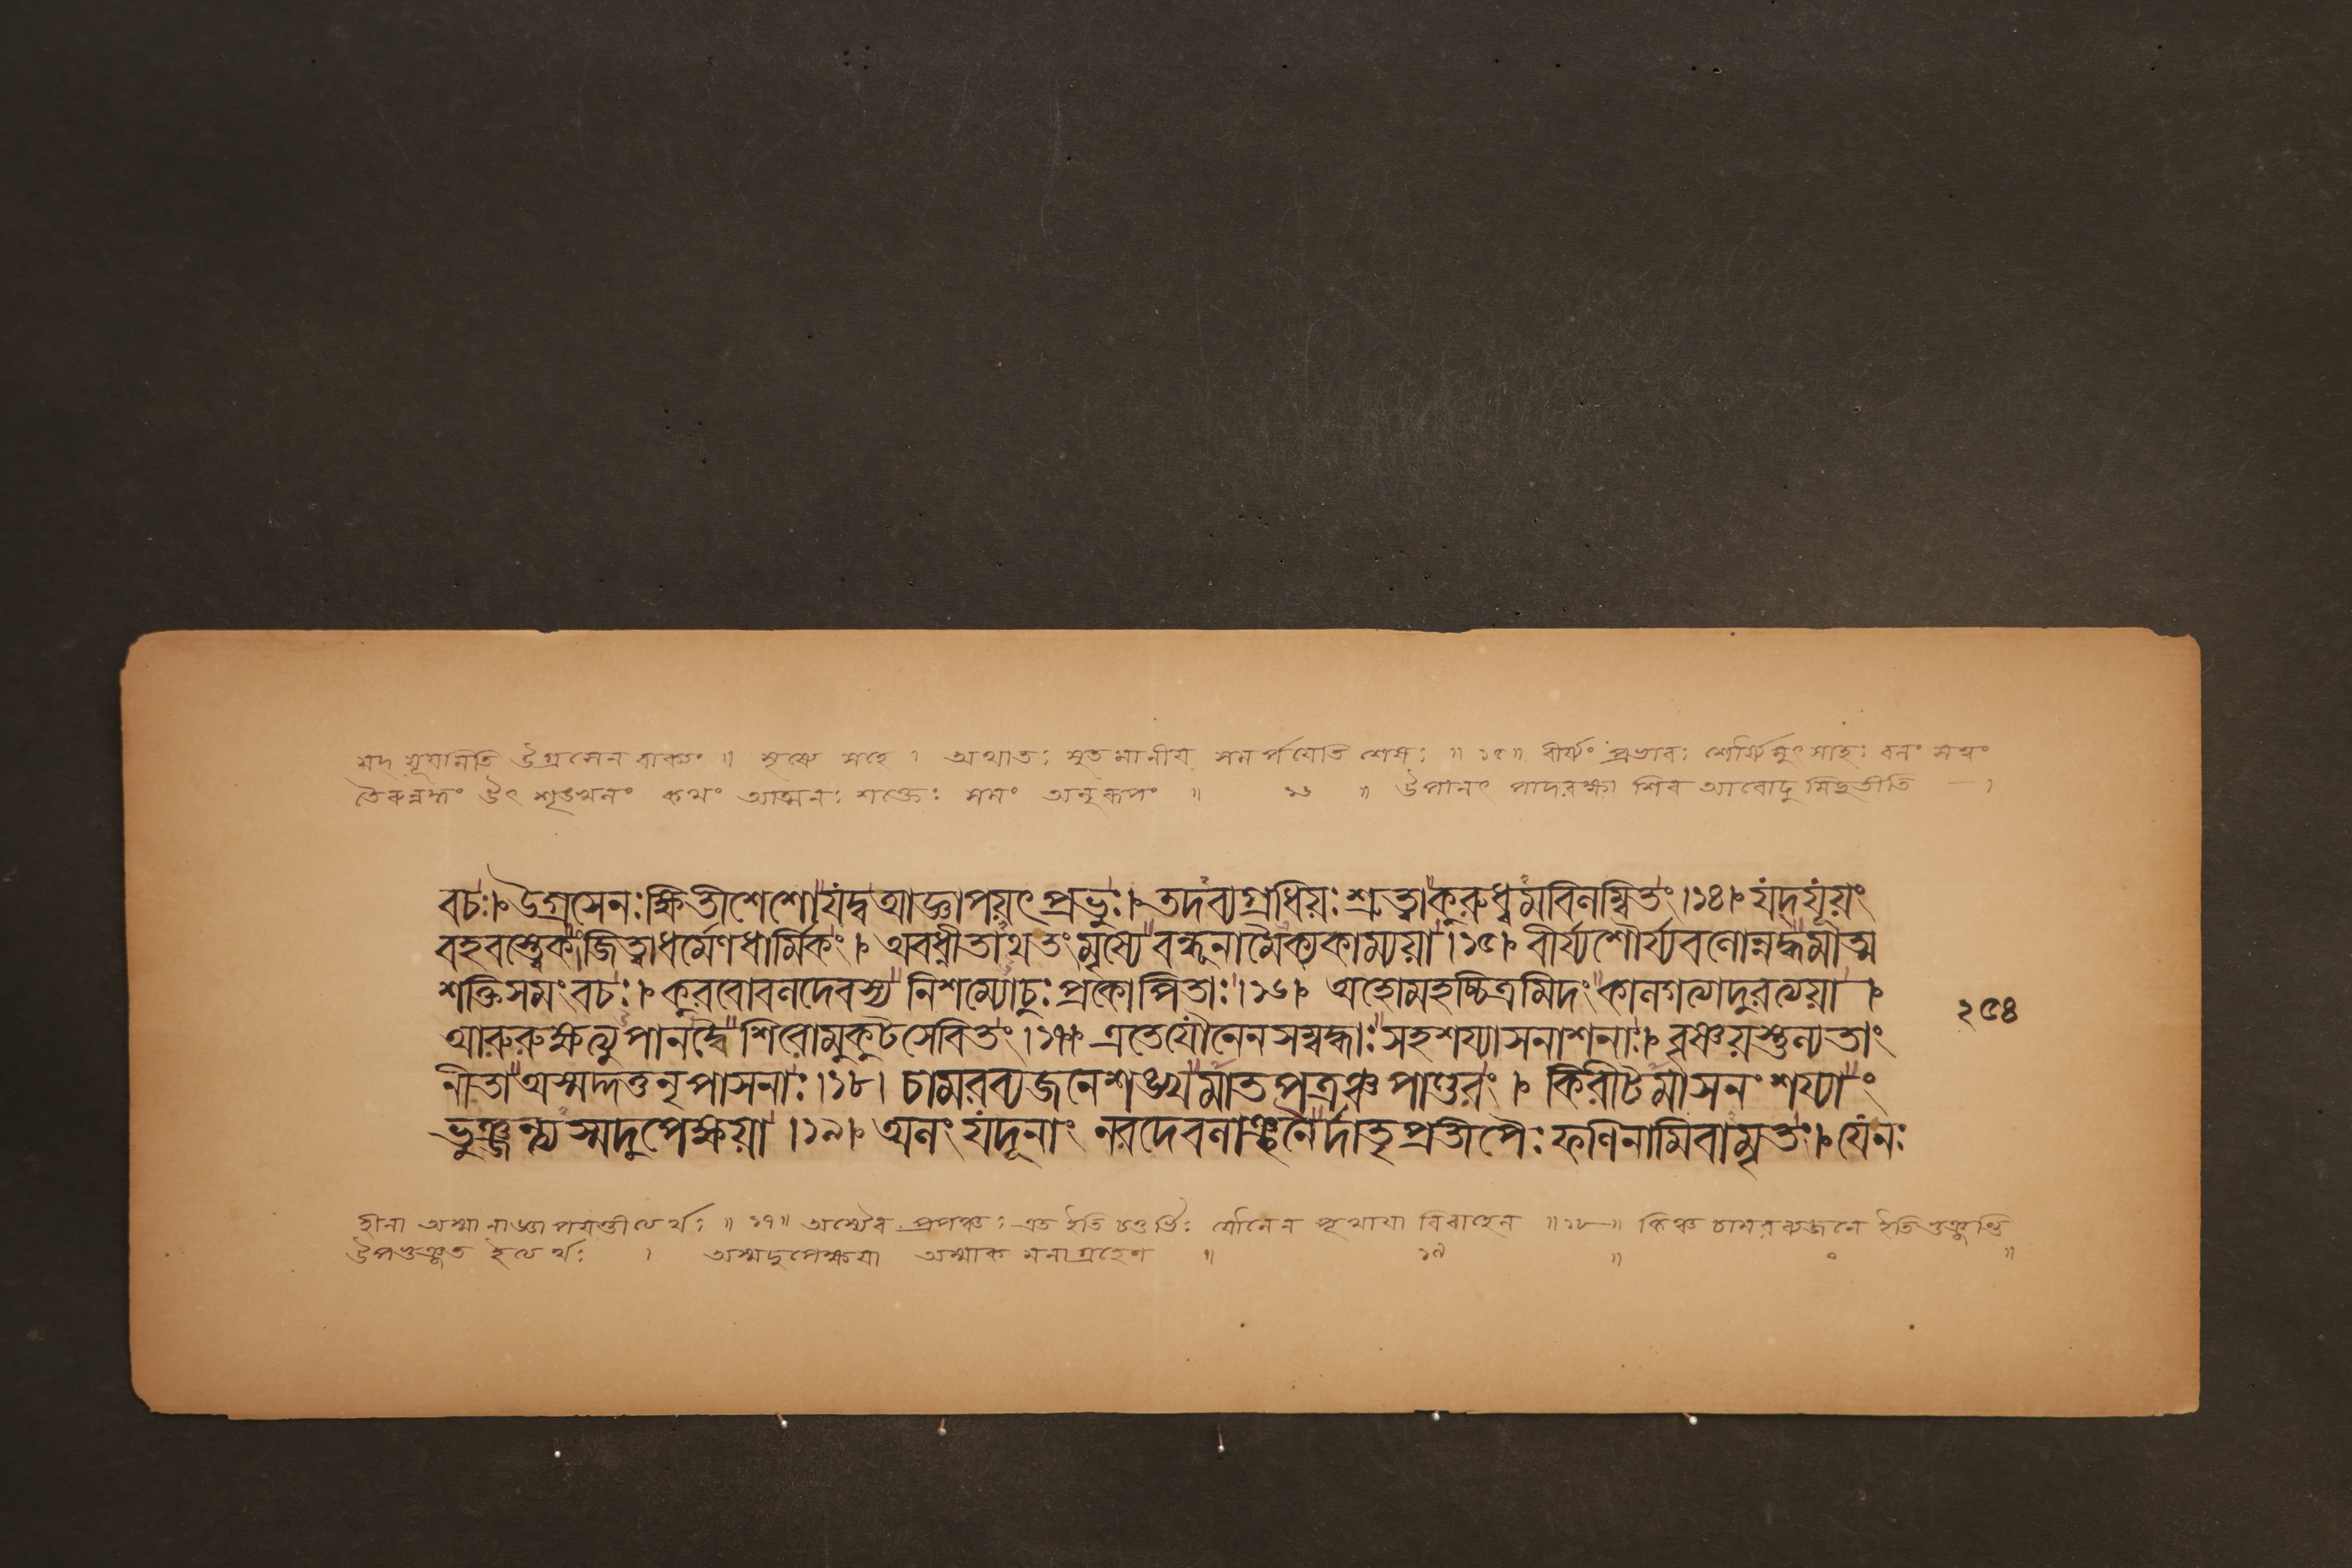 যদ যূযমিতি উগ্রসেন বাক্যং ॥ মৃষ্যে সহে । অথাতঃ সুত মানীয সমর্পযেতি শেষঃ ॥ ১৫ ॥ বীর্য্যং প্রভাবঃ শৌর্য্যমুৎসাহঃ বলং সত্বং
তৈরুন্নদ্ধং উৎ শৃঙ্খলং কথং আত্মনঃ শক্তেঃ সমং অনুরূপং ॥ ১৬ ॥ উপানৎ পাদরক্ষা শির আরোঢু মিচ্ছতীতি — ।
বচঃ। উগ্রসেনঃক্ষিতীশেশো যদ্বআজ্ঞাপয়ৎ প্রভুঃ। তদব্যগ্রধিয়ঃ শ্রুত্বা কুরুধ্বমবিলম্বিতং ।১৪। যদযূয়ং
বহবস্ত্বেকংজিত্বাধর্মেণধার্মিকং। অবধ্নীতাথ তংমৃষ্যে বন্ধূনামৈক্যকাম্যয়া ।১৫। বীর্য্যশৌর্য্যবলোন্নদ্ধমাত্ম
শক্তিসমংবচঃ। কুরবোবলদেবস্য নিশম্যোচুঃ প্রকোপিতাঃ ।১৬। অহোমহচ্চিত্রমিদং কালগত্যাদুরত্যয়া ।
আরুরুক্ষত্যুপানদ্বৈ শিরোমুকুটসেবিতং ।১৭। এতেযৌনেনসম্বদ্ধাঃ সহশয্যাসনাশনাঃ। বৃষ্ণয়স্তুল্যতাং
নীতা অস্মদ্দত্তনৃপাসনাঃ ।১৮। চামরব্যজনেশঙ্খমাতপত্রঞ্চ পাণ্ডুরং । কিরীটমাসনং শয্যাং
ভুঞ্জন্ত্যস্মদুপেক্ষয়া ।১৯। অলং যদূনাং নরদেবলাঞ্ছনৈর্দাতৃপ্রতীপৈঃ ফণিনামিবামৃতং। যেনঃ
২৫৪
হীনা অস্মানাজ্ঞাপযন্তীত্যর্থঃ ॥ ১৭ ॥ অস্যৈব প্রপঞ্চঃ এত ইতি চতুর্ভিঃ যৌনেন পৃথাযা বিবাহেন ॥ ১৮ ॥ কিঞ্চ চামরব্যজনে ইতি ভুঞ্জন্তি
উপভুঞ্জত ইত্যর্থঃ । অস্মদুপেক্ষযা অস্মাক মনাগ্রহেণ ॥ ১৯ ॥ ০ ॥